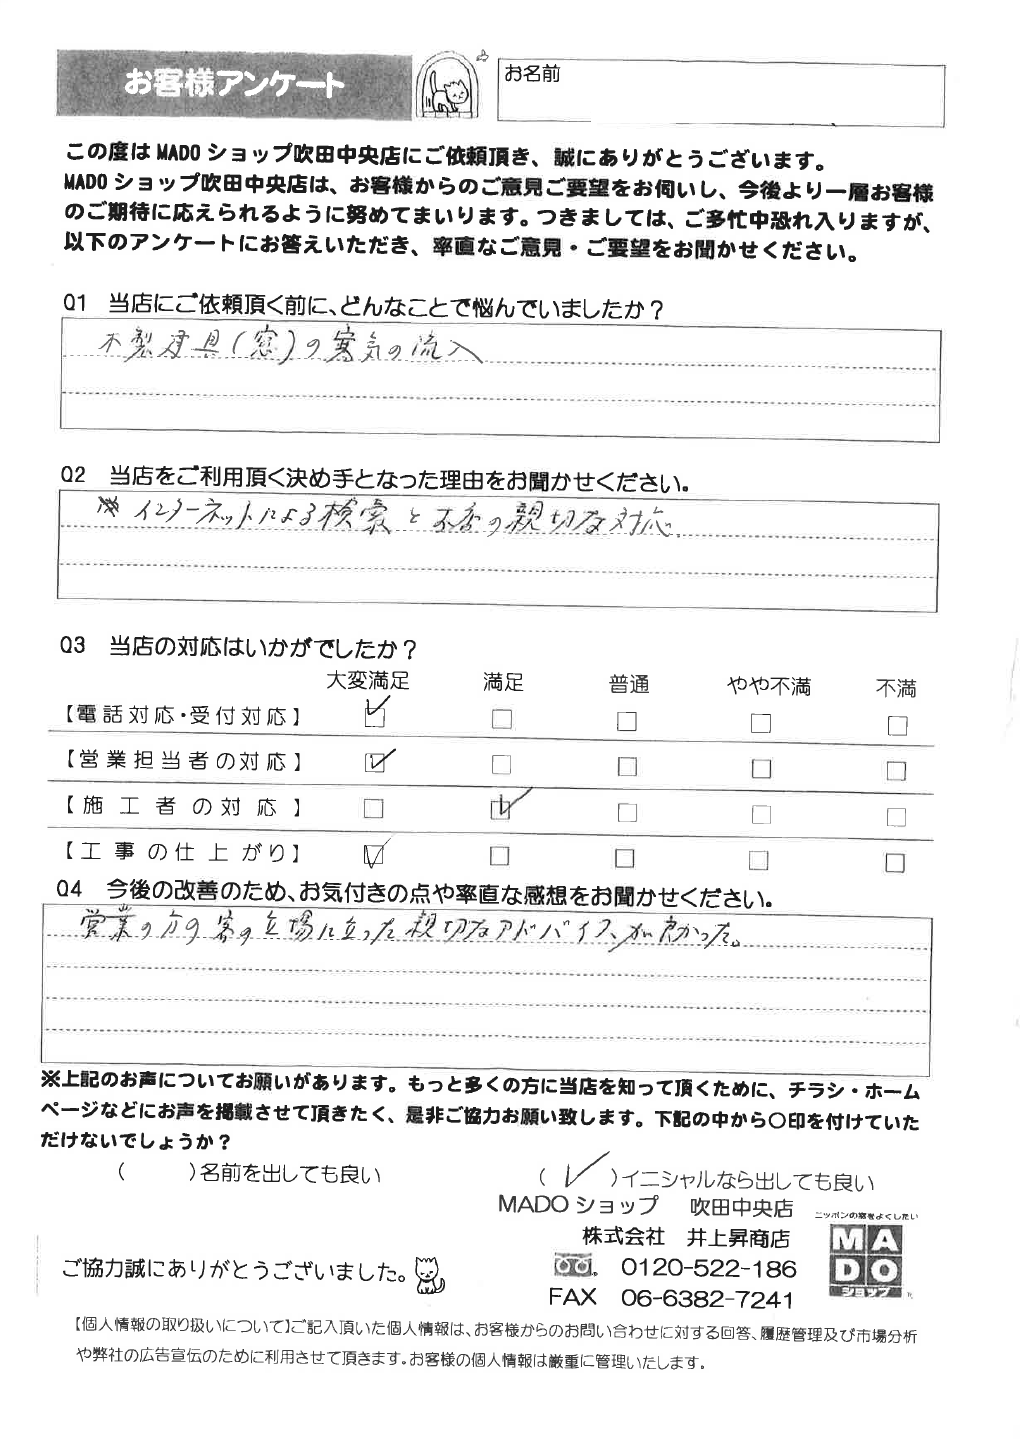 お客様アンケート
お名前
この度は MADO ショップ吹田中央店にご依頼頂き、誠にありがとうございます。
MADO ショップ吹田中央店は、お客様からのご意見ご要望をお伺いし、今後より一層お客様
のご期待に応えられるように努めてまいります。つきましては、ご多忙中恐れ入りますが、
以下のアンケートにお答えいただき、率直なご意見・ご要望をお聞かせください。
Q1 当店にご依頼頂く前に、どんなことで悩んでいましたか？
木製建具(窓)の寒気の流入
Q2 当店をご利用頂く決め手となった理由をお聞かせください。
インターネットによる検索と の親切な対応
Q3 当店の対応はいかがでしたか？
大変満足 満足 普通 やや不満 不満
【電話対応・受付対応】
【営業担当者の対応】
【施工者の対応】
【工事の仕上がり】
Q4 今後の改善のため、お気付きの点や率直な感想をお聞かせください。
営業の方の客の立場に立った親切なアドバイスが良かった。
※上記のお声についてお願いがあります。もっと多くの方に当店を知って頂くために、チラシ・ホーム
ページなどにお声を掲載させて頂きたく、是非ご協力お願い致します。下記の中から〇印を付けていた
だけないでしょうか？
( )名前を出しても良い (✓)イニシャルなら出しても良い
MADO ショップ 吹田中央店
ニッポンの窓をよくしたい
株式会社 井上昇商店
MADO
ショップ
ご協力誠にありがとうございました。
0120-522-186
FAX 06-6382-7241
【個人情報の取り扱いについて】ご記入頂いた個人情報は、お客様からのお問い合わせに対する回答、履歴管理及び市場分析
や弊社の広告宣伝のために利用させて頂きます。お客様の個人情報は厳重に管理いたします。